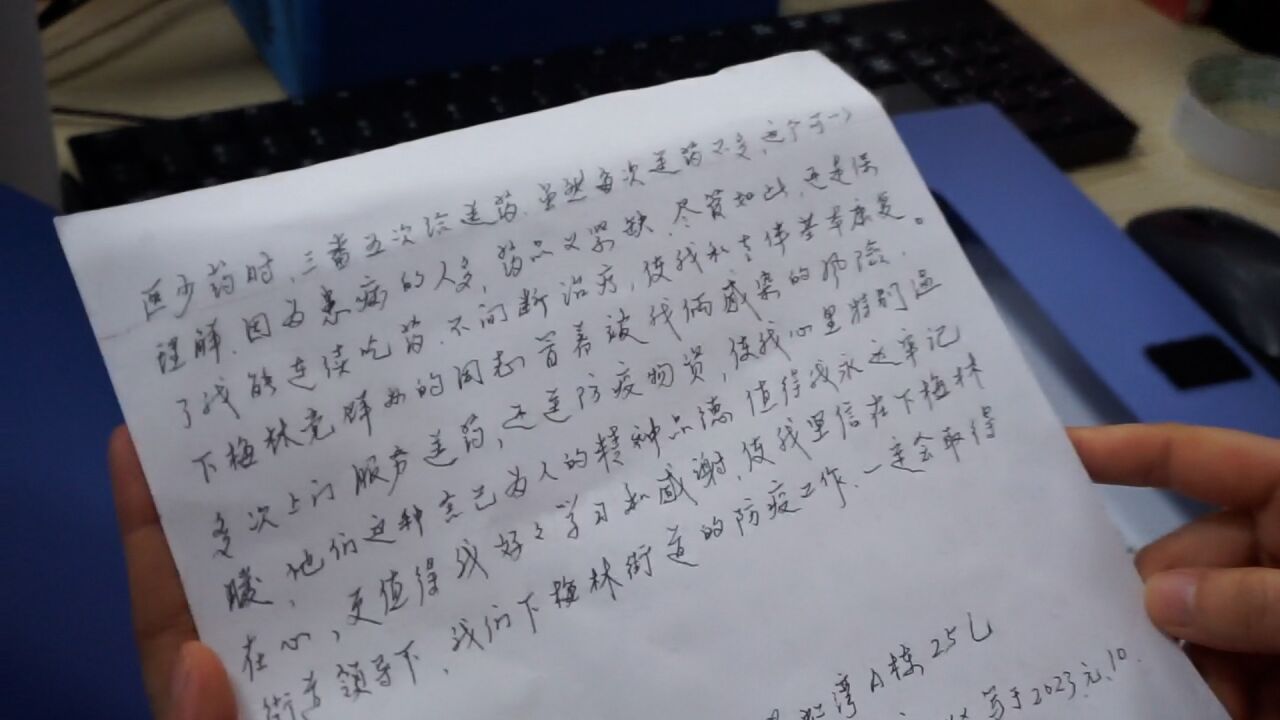 医少药时、三番五次给送药。虽然每次送药不多,这个可以
理解。因为患病的人多,药品又紧缺,尽管如此,还是保
了我能连续吃药,不间断治疗,使我和老伴基本康复。
下梅林党群办的同志冒着被我俩感染的风险,
多次上门服务送药,还送防疫物资,使我心里特别温
暖,他们这种舍己为人的精神品德值得我永远牢记
在心,更值得我好好学习和感谢,使我坚信在下梅林
街道领导下,我们下梅林街道的防疫工作,一定会取得
湾A栋25L
写于2023.元.10.